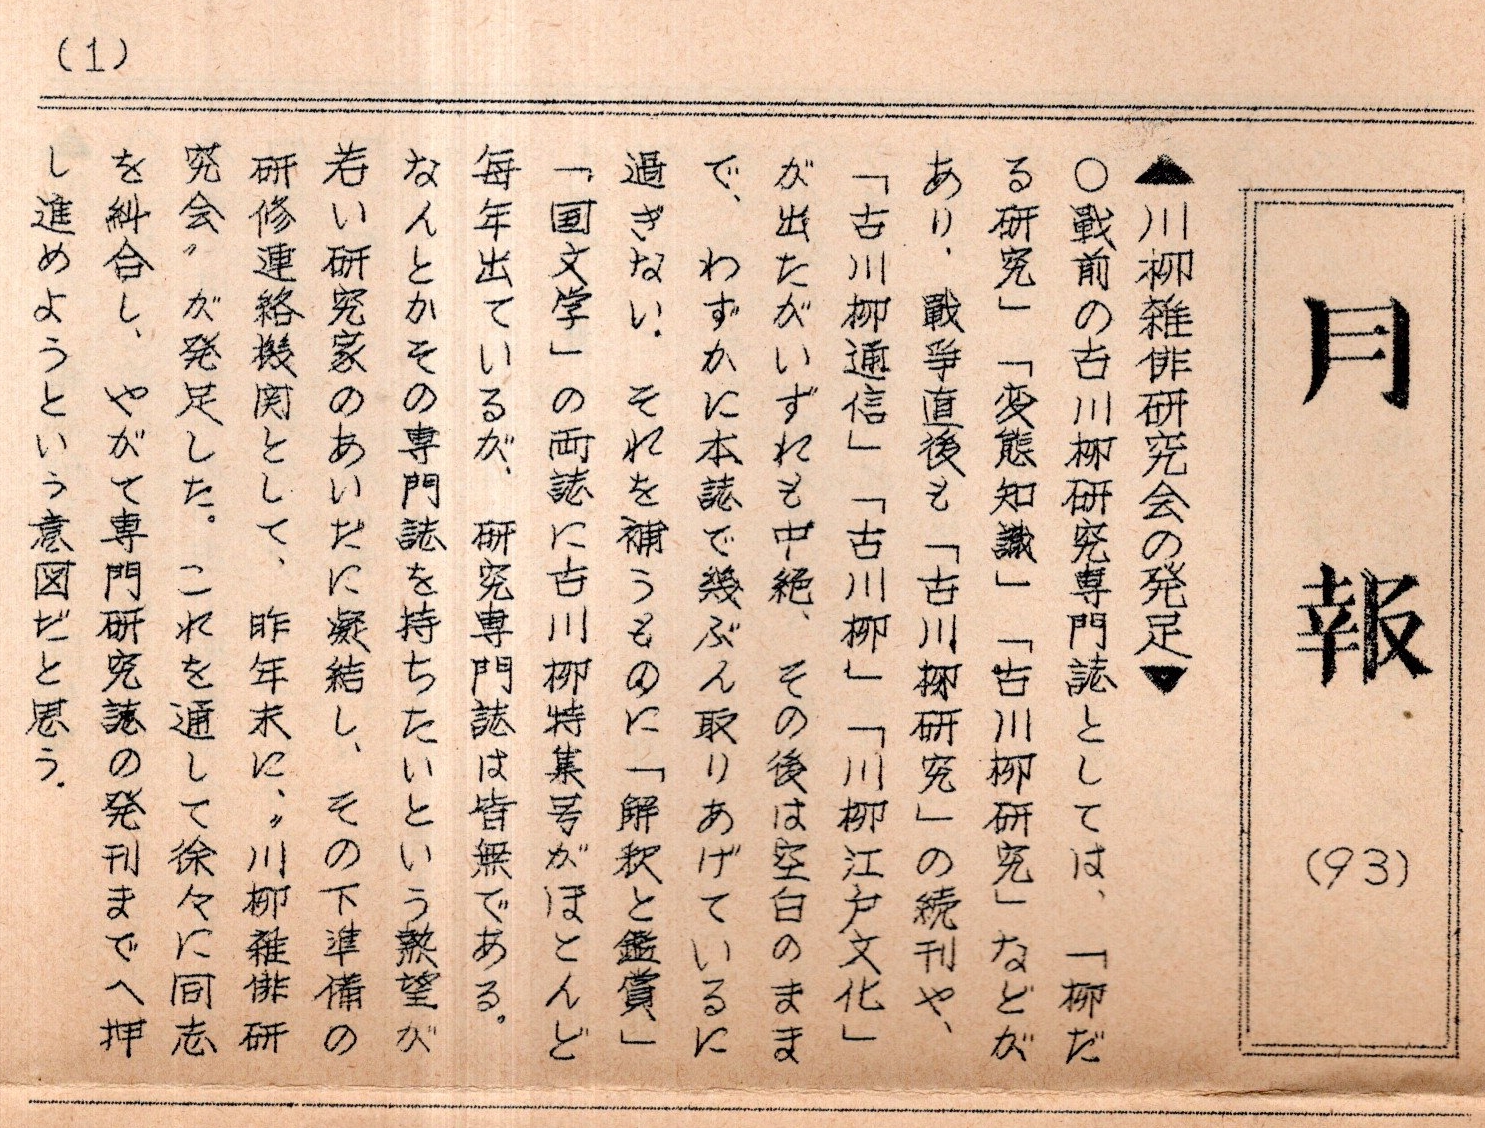 (1)
月報
(93)
▲川柳雑俳研究会の発足▼
○戦前の古川柳研究専門誌としては、「柳だ
る研究」「変態知識」「古川柳研究」などが
あり、戦争直後も「古川柳研究」の続刊や、
「古川柳通信」「古川柳」「川柳江戸文化」
が出たがいずれも中絶、その後は空白のまま
で、わずかに本誌で幾ぶん取りあげているに
過ぎない。それを補うものに「解釈と鑑賞」
「国文学」の両誌に古川柳特集号がほとんど
毎年出ているが、研究専門誌は皆無である。
なんとかその専門誌を持ちたいという熱望が
若い研究家のあいだに凝結し、その下準備の
研修連絡機関として、昨年末に、〃川柳雑俳研
究会〃が発足した。これを通して徐々に同志
を糾合し、やがて専門研究誌の発刊までへ押
し進めようという意図だと思う。